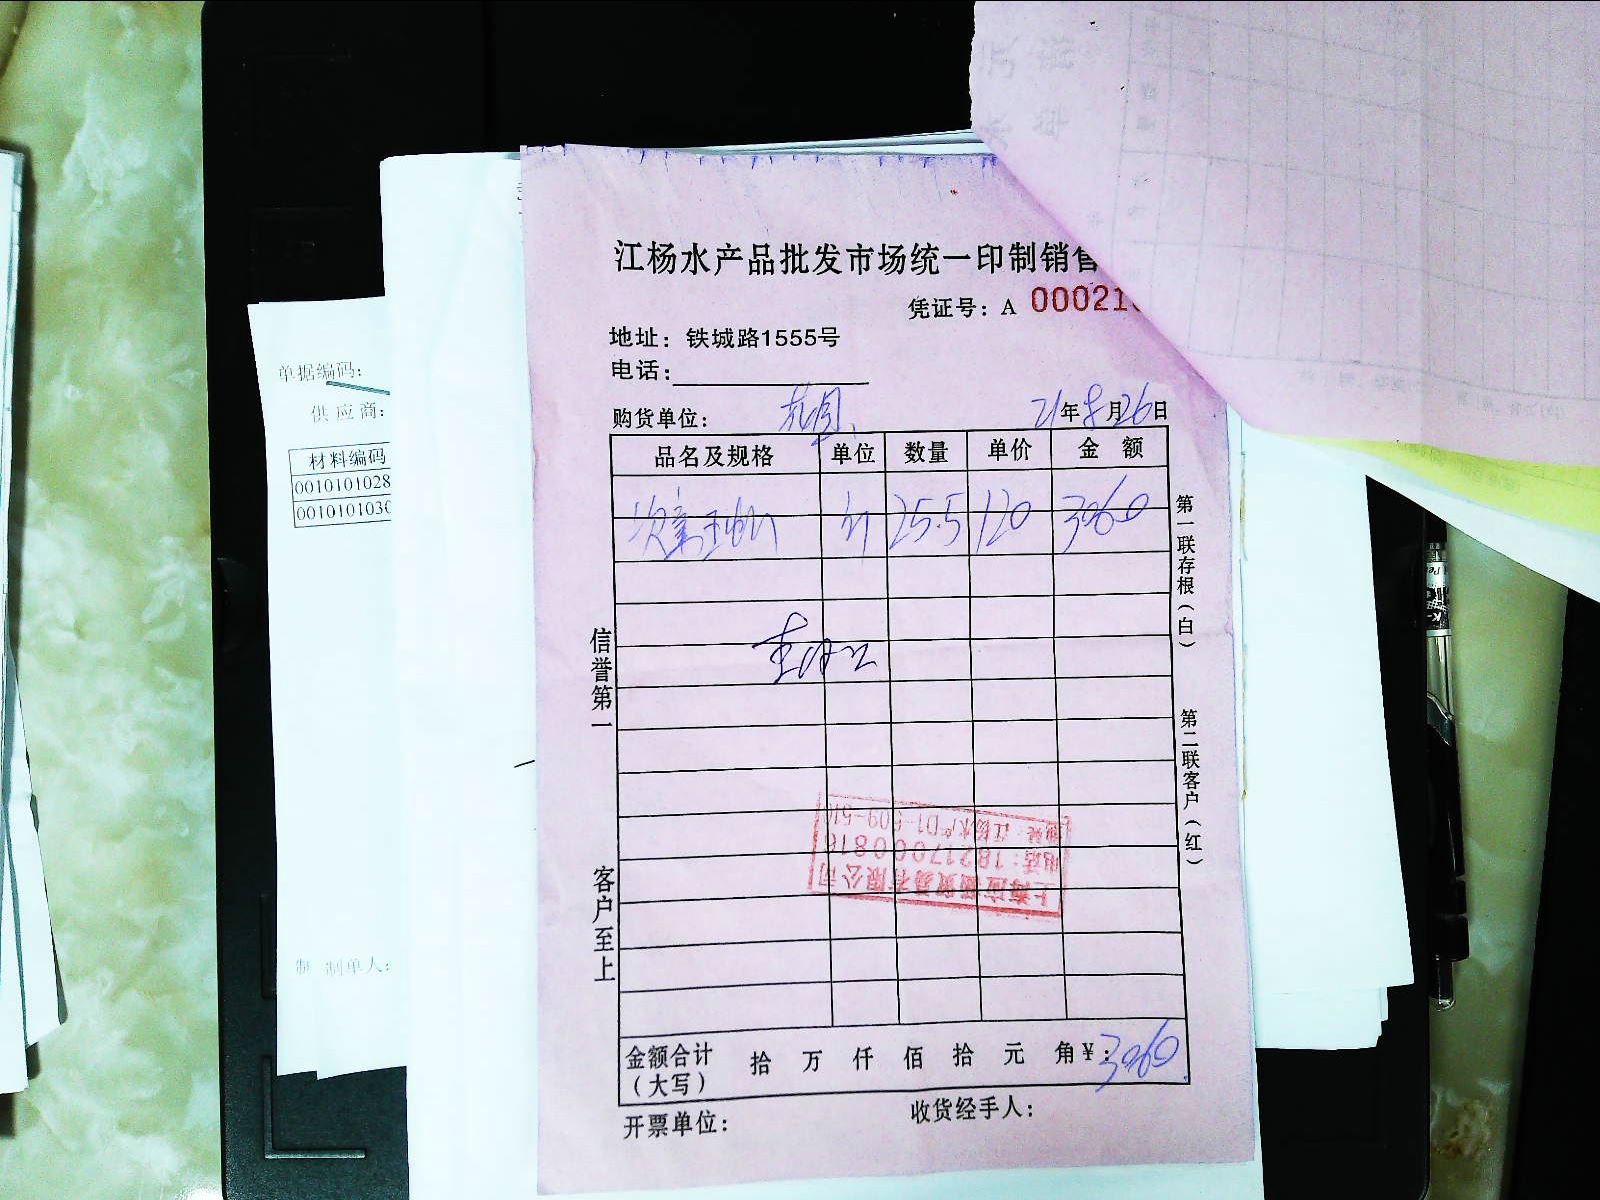 江杨水产品批发市场统一印制销售
凭证号：A 00021
地址：铁城路1555号
电话：
购货单位：
21年8月26日
品名及规格 单位 数量 单价 金 额
斤 25.5 120 3060
信誉第一
客户至上
第一联存根（白）
第二联客户（红）
地址：江杨水产D1-509-510
电话：18217000816
上海应 贸易有限公司
金额合计 拾 万 仟 佰 拾 元 角 ¥：3060
（大写）
开票单位：
收货经手人：
单据编码：
供应商：
材料编码
0010101028
001010103
制 制单人：